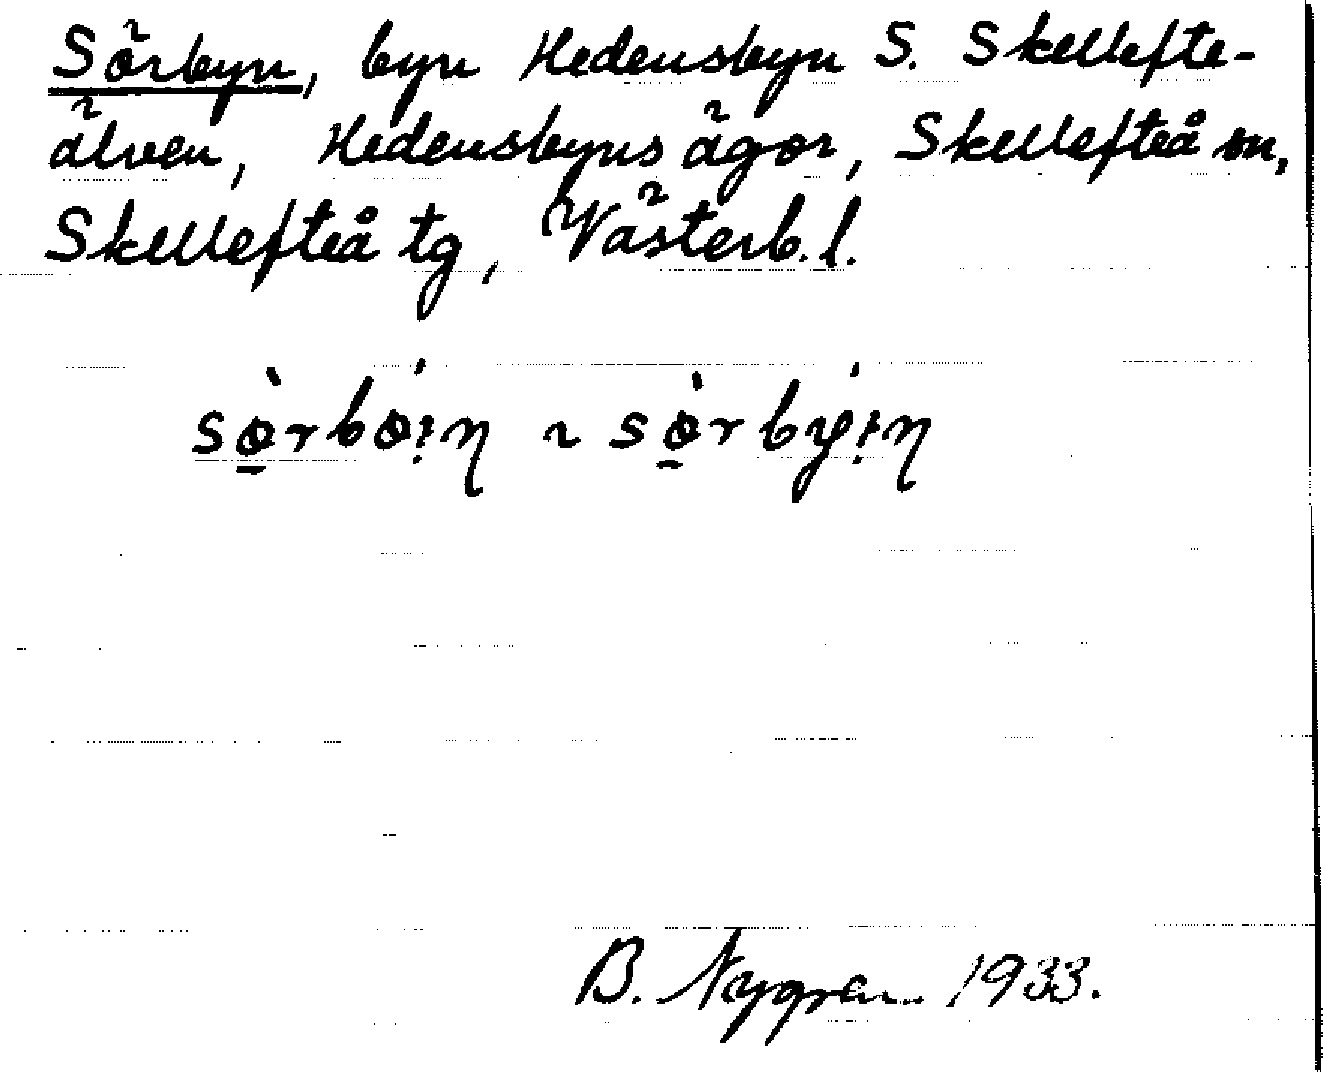 Sörbyn, byn Hedensbyn S. Skellefte-
älven, Hedensbyns ägor, Skellefteå sn,
Skellefteå tg, Västerb. l.
sø̱̀rbǿi̩η ~ sø̱̀rbýi̩η
B. Nygren 1933.